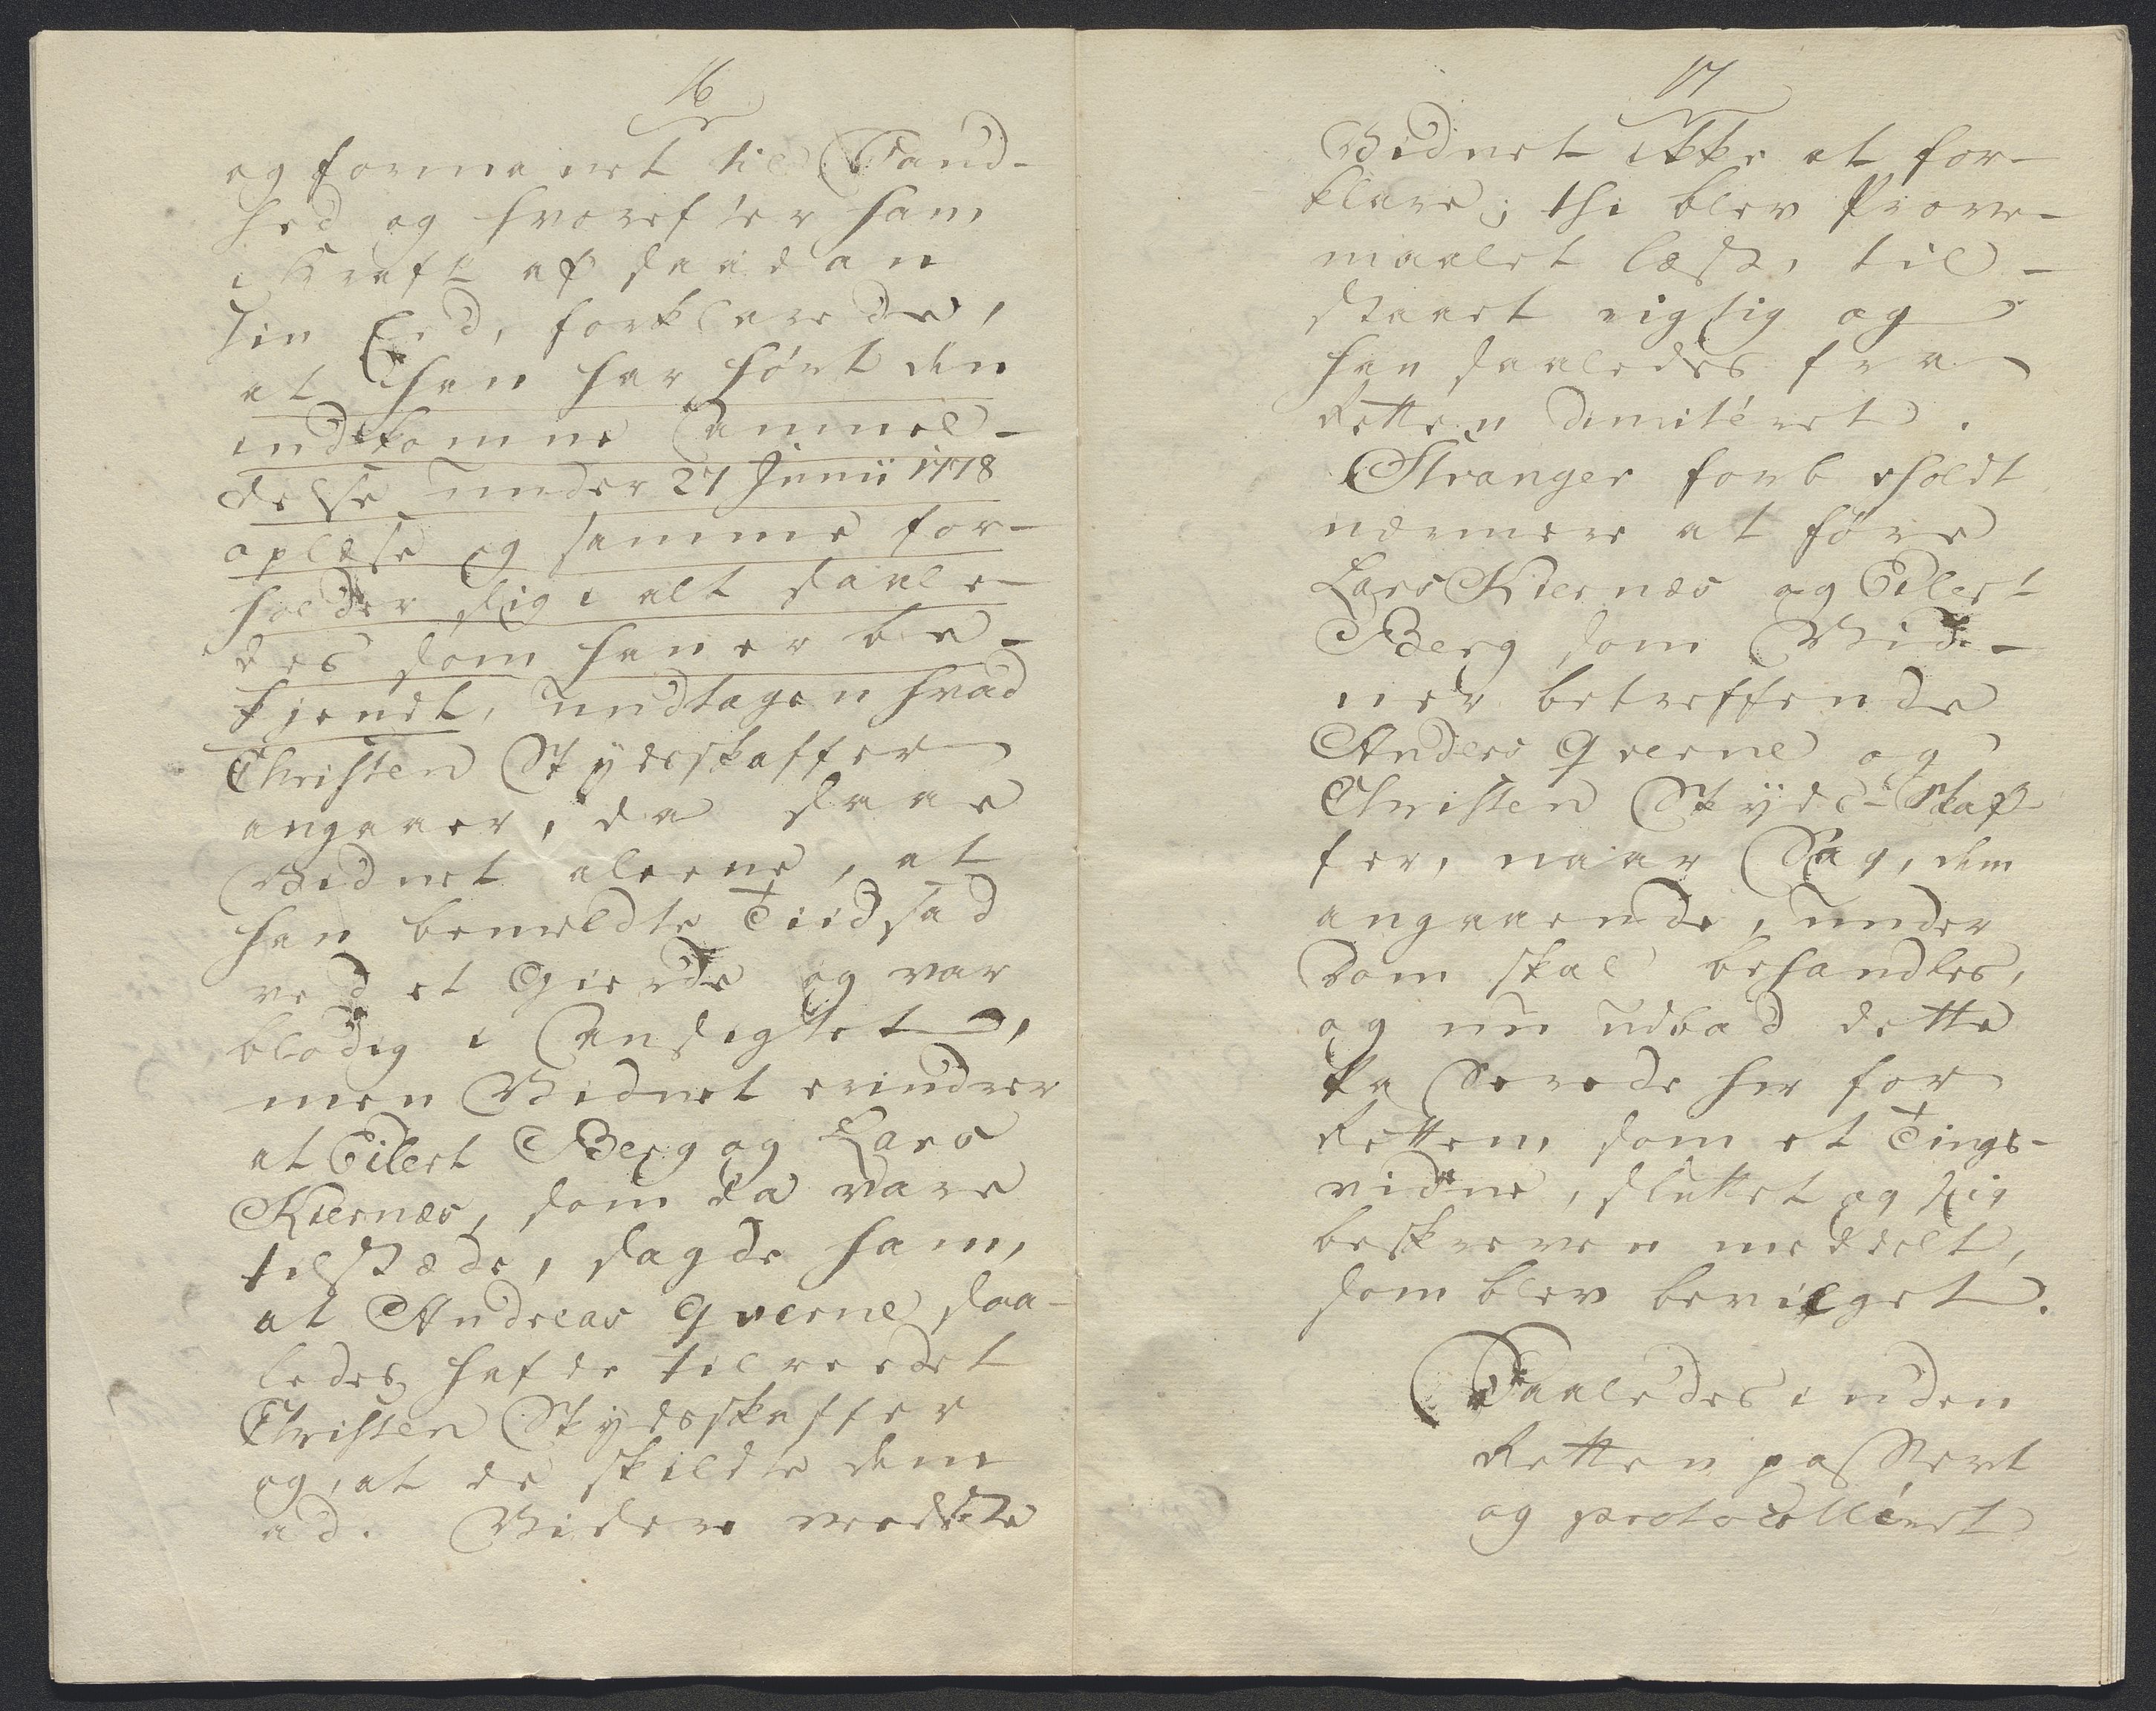 16
og formanet til Sand-
hed og hvorefter ham
i Kraft af saadan
sin Eed, forklarede,
at han har hört den
indkomne Anmel-
delse under 27 Junii 1778
oplæse og samme for-
holder sig i alt saale-
des som han er be-
kjendt, undtagen hvad
Christen Skydsskaffer
angaaer, da saae
Vidnet aleene, at
han bemeldte Tiid sad
ved et Gierde og var
blodig i Ansigtet,
men Vidnet erindrer
at Eilert Berg og Lars
Kiernæs, som da vare
tilstæde, sagde ham,
at Andreas Qverne saa-
ledes hafde tilreedet
Christen Skydsskaffer
og, at de skildte dem
ad. Videre vedste
17
Vidnet ikke at for-
klare; thi blev Prove-
maalet læst, til-
staaet rigtig og
han saaledes fra
Retten dimitéret.
Stranger forbeholdt
nærmere at före
Lars Kiernæs og Eilert
Berg som Vid-
ner betreffende
Anders Qverne og
Christen Skyds-Skaf-
fer, naar Sag, dem
angaaende, under
Dom skal behandles,
og nu udbad dette
passerede her for
Retten, som et Tings-
vidne, sluttet og sig
beskreven meddelt,
som blev bevilget.
Saaledes inden
Retten passeret
og protocolléret